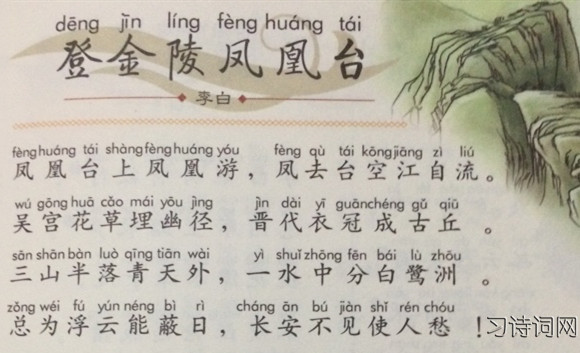 dēng jīn líng fèng huáng tái
登金陵凤凰台
李白
fèng huáng tái shàng fèng huáng yóu, fèng qù tái kōng jiāng zì liú
凤凰台上凤凰游，凤去台空江自流。
wú gōng huā cǎo mái yōu jìng jìn dài yī guān chéng gǔ qiū
吴宫花草埋幽径，晋代衣冠成古丘。
sān shān bàn luò qīng tiān wài yì shuǐ zhōng fēn bái lù zhōu
三山半落青天外，一水中分白鹭洲。
zǒng wéi fú yún néng bì rì cháng ān bú jiàn shǐ rén chóu
总为浮云能蔽日，长安不见使人愁！
习诗词网